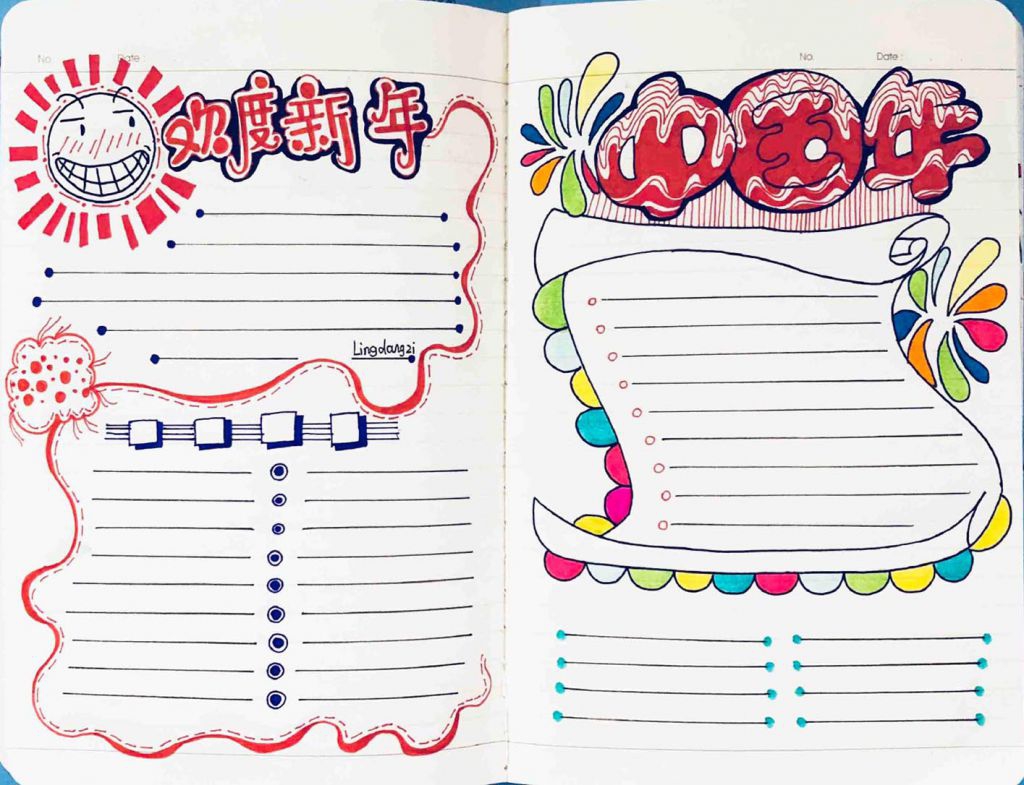 No.
Date:
欢度新年
Lingdangzi
No.
Date:
中国年